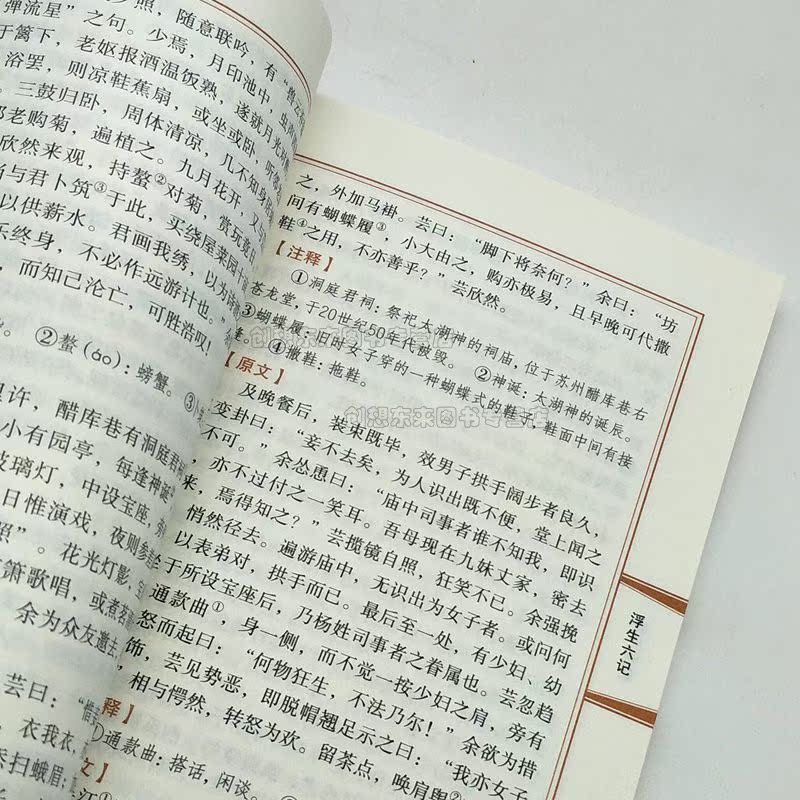 照，随意联吟，有“兽云
弹流星”之句。少焉，月印池中，虫声
于篱下，老妪报酒温饭熟，遂就月光
浴罢，则凉鞋蕉扇，或坐或卧，听邻
三鼓归卧，周体清凉，几不知身
邻老购菊，遍植之。九月花开，又与
欣然来观，持螯②对菊，赏玩竟
当与君卜筑③于此，买绕屋菜园十
以供薪水。君画我绣，以为诗
乐终身，不必作远游计也。”
而知己沦亡，可胜浩叹！
②螯（áo）：螃蟹。③
许，醋库巷有洞庭君祠
小有园亭，每逢神诞
玻璃灯，中设宝座，旁
日惟演戏，夜则参差
照”。花光灯影，宝
箫歌唱，或煮茗
余为众友邀去，
芸曰：“惜
衣我衣，
添扫蛾眉，
之，外加马褂。芸曰：“脚下将奈何？”余曰：“坊
间有蝴蝶履③，小大由之，购亦极易，且早晚可代撒
鞋④之用，不亦善乎？”芸欣然。
【注释】
①洞庭君祠：祭祀太湖神的祠庙，位于苏州醋库巷右
苍龙堂，于20世纪50年代被毁。②神诞：太湖神的诞辰。
③蝴蝶履：旧时女子穿的一种蝴蝶式的鞋，在鞋面中间有接
鞋。④撒鞋：拖鞋。
【原文】
及晚餐后，装束既毕，效男子拱手阔步者良久，
变卦曰：“妾不去矣，为人识出既不便，堂上闻之
不可。”余怂恿曰：“庙中司事者谁不知我，即识
亦不过付之一笑耳。吾母现在九妹丈家，密去
来，焉得知之？”芸揽镜自照，狂笑不已。余强挽
悄然径去。遍游庙中，无识出为女子者。或问何
以表弟对，拱手而已。最后至一处，有少妇、幼
于所设宝座后，乃杨姓司事者之眷属也。芸忽趋
通款曲①，身一侧，而不觉一按少妇之肩，旁有
怒而起曰：“何物狂生，不法乃尔！”余欲为措
饰，芸见势恶，即脱帽翘足示之曰：“我亦女子
相与愕然，转怒为欢。留茶点，唤肩舆②
释】
①通款曲：搭话，闲谈。
文】
江
浮生六记
创想东来图书专营店
创想东来图书专营店